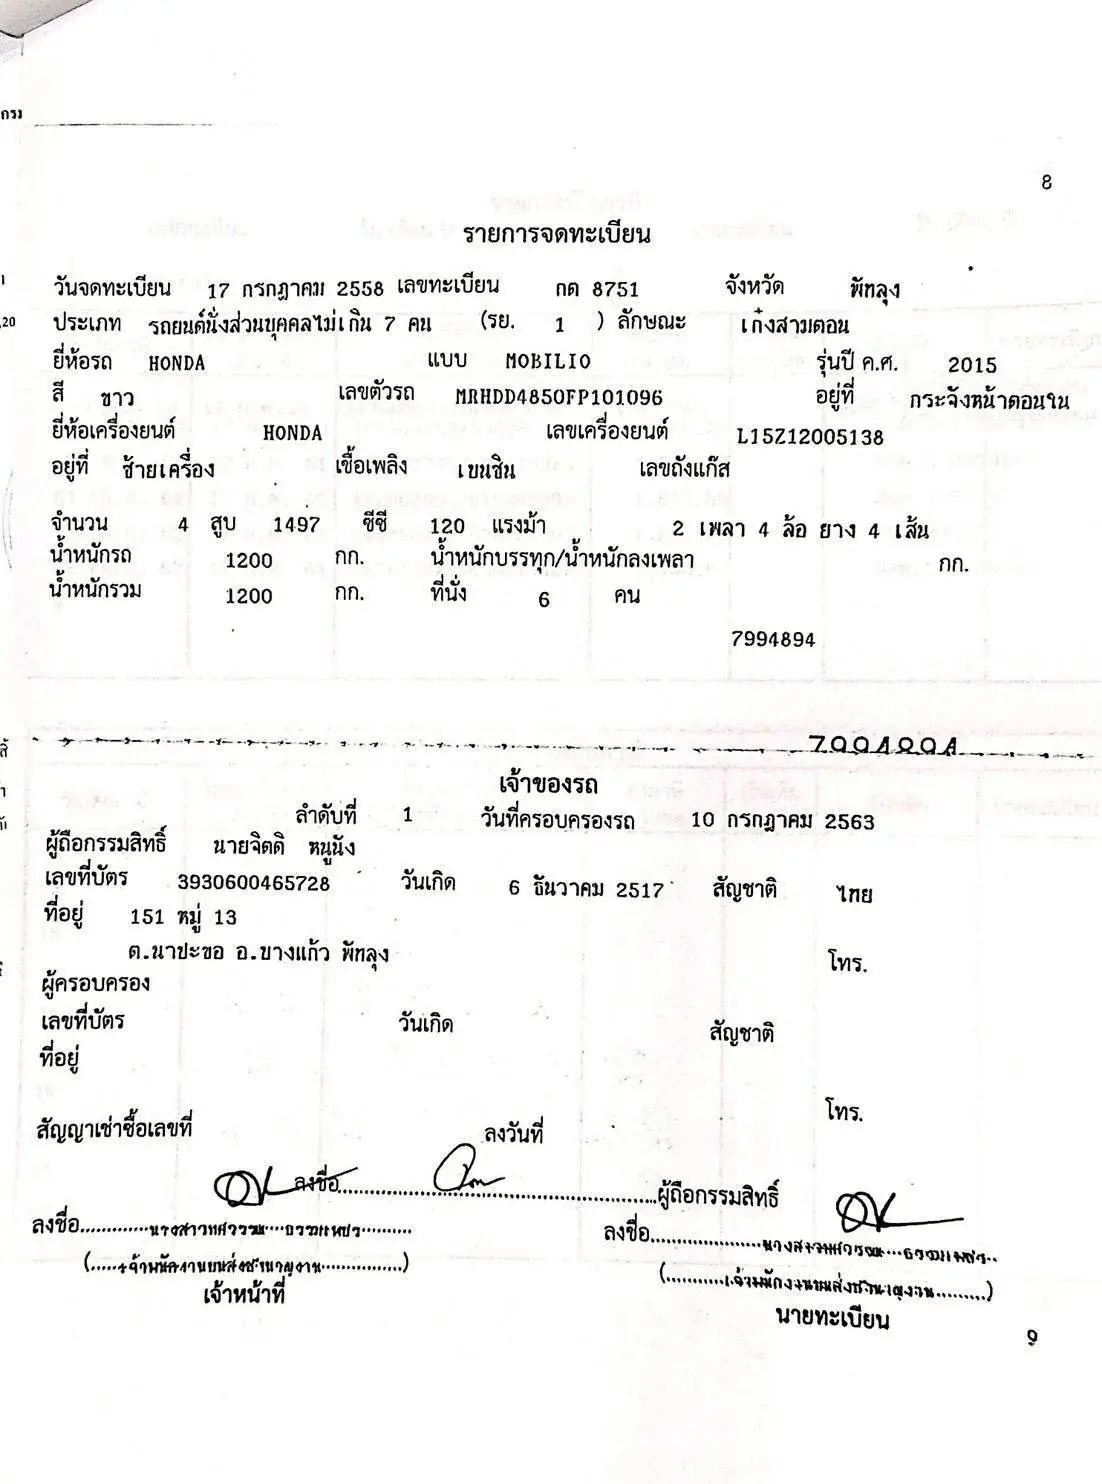 8
รายการจดทะเบียน
วันจดทะเบียน 17 กรกฎาคม 2558 เลขทะเบียน กต 8751 จังหวัด พัทลุง
ประเภท รถยนต์นั่งส่วนบุคคลไม่เกิน 7 คน (รย. 1 ) ลักษณะ เก๋งสามตอน
ยี่ห้อรถ HONDA แบบ MOBILIO รุ่นปี ค.ศ. 2015
สี ขาว เลขตัวรถ MRHDD4850FP101096 อยู่ที่ กระจังหน้าตอนใน
ยี่ห้อเครื่องยนต์ HONDA เลขเครื่องยนต์ L15Z12005138
อยู่ที่ ซ้ายเครื่อง เชื้อเพลิง เบนซิน เลขถังแก๊ส
จำนวน 4 สูบ 1497 ซีซี 120 แรงม้า 2 เพลา 4 ล้อ ยาง 4 เส้น
น้ำหนักรถ 1200 กก. น้ำหนักบรรทุก/น้ำหนักลงเพลา กก.
น้ำหนักรวม 1200 กก. ที่นั่ง 6 คน
7994894
7994894
เจ้าของรถ
ลำดับที่ 1 วันที่ครอบครองรถ 10 กรกฎาคม 2563
ผู้ถือกรรมสิทธิ์ นายจิตติ หนูนัง
เลขที่บัตร 3930600465728 วันเกิด 6 ธันวาคม 2517 สัญชาติ ไทย
ที่อยู่ 151 หมู่ 13
ต.นาปะขอ อ.บางแก้ว พัทลุง โทร.
ผู้ครอบครอง
เลขที่บัตร วันเกิด สัญชาติ
ที่อยู่
โทร.
สัญญาเช่าซื้อเลขที่ ลงวันที่
ลงชื่อ..........ผู้ถือกรรมสิทธิ์
ลงชื่อ..........นางสาว ลงชื่อ..........นางสาว
(......เจ้าพนักงานขนส่งชำนาญงาน......) (......เจ้าพนักงานขนส่งชำนาญงาน......)
เจ้าหน้าที่ นายทะเบียน
9